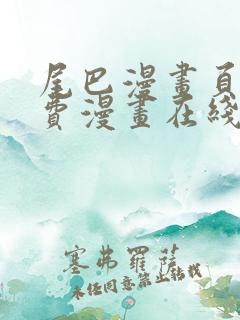 尾巴漫畫頁
費漫畫在綫
塞弗羅薩
未经同意禁止转载